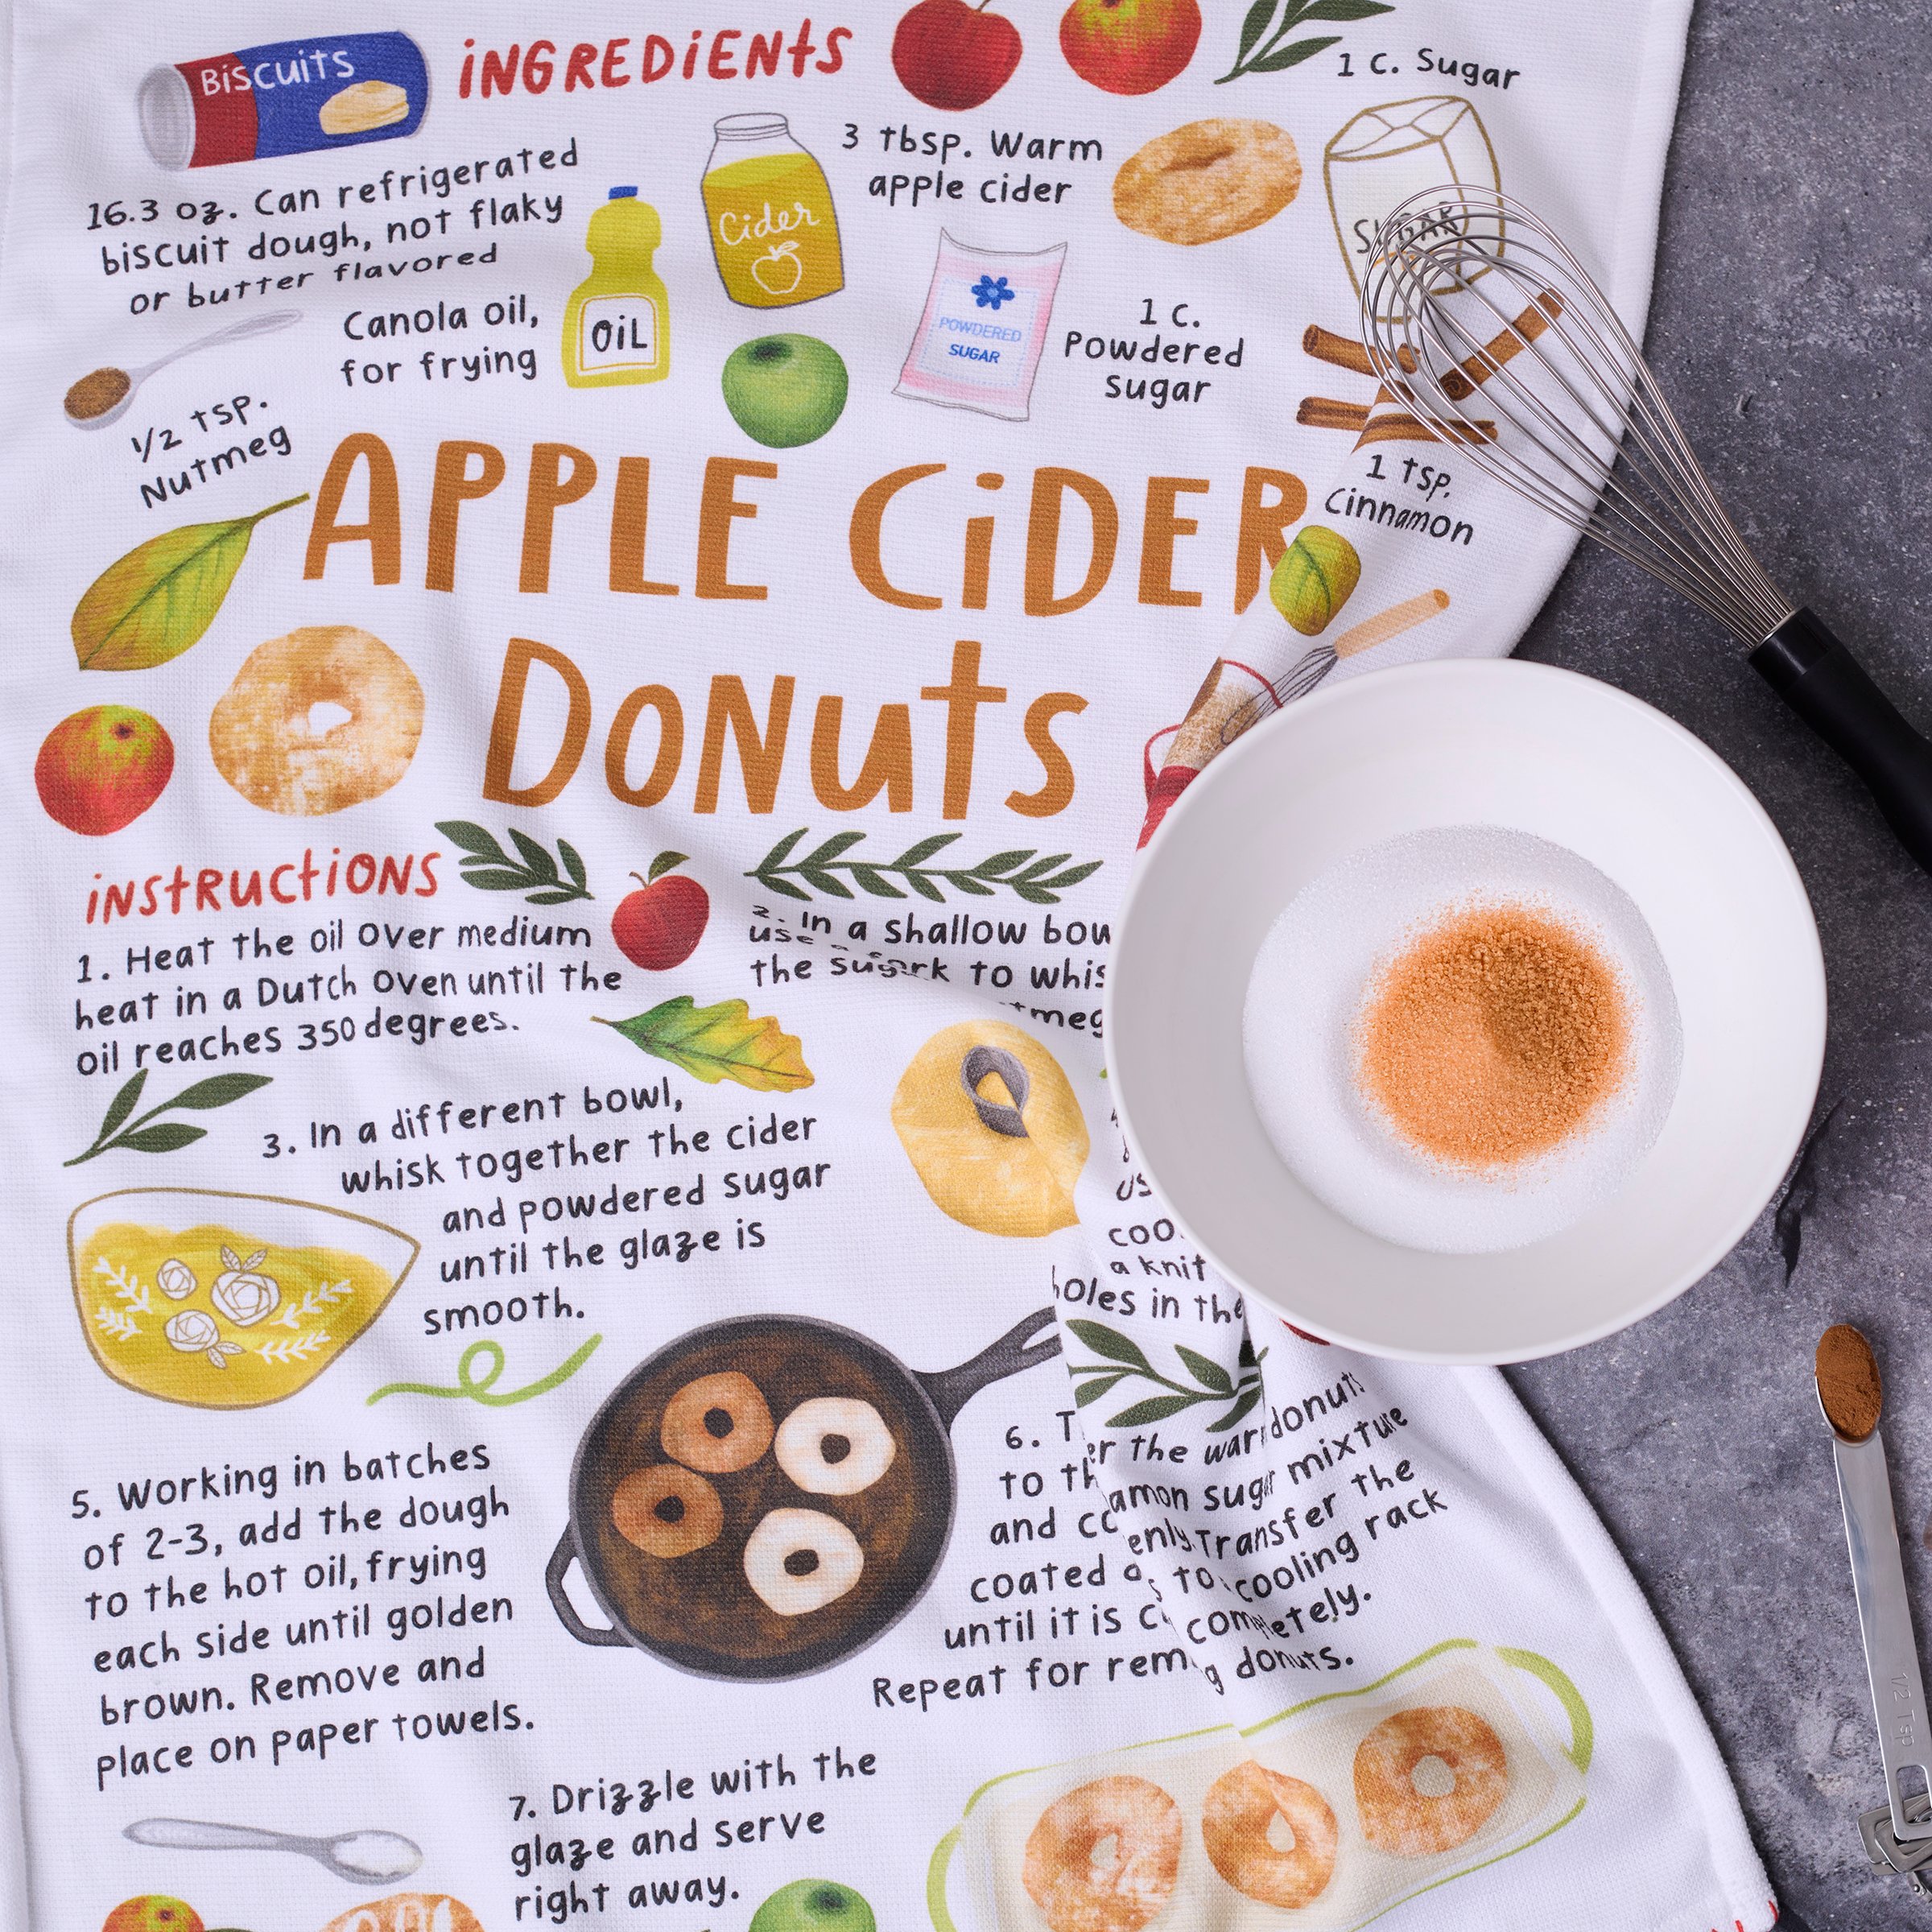 Biscuits
INGREDIENTS
1 c. Sugar
16.3 oz. Can refrigerated
biscuit dough, not flaky
or butter flavored
Cider
3 tbsp. Warm
apple cider
SUGAR
Canola oil,
for frying
OIL
POWDERED
SUGAR
1 c.
Powdered
sugar
1/2 tsp.
Nutmeg
1 tsp.
Cinnamon
APPLE CIDER
DONUTS
INSTRUCTIONS
1. Heat the oil over medium
heat in a Dutch oven until the
oil reaches 350 degrees.
2. In a shallow
use
the to
3. In a different bowl,
whisk together the cider
and powdered sugar
until the glaze is
smooth.
a
in the
5. Working in batches
of 2-3, add the dough
to the hot oil, frying
each side until golden
brown. Remove and
place on paper towels.
6. the donuts
to sugar mixture
and Transfer the
coated to cooling rack
until it is completely.
Repeat for donuts.
7. Drizzle with the
glaze and serve
right away.
1/2 Tsp